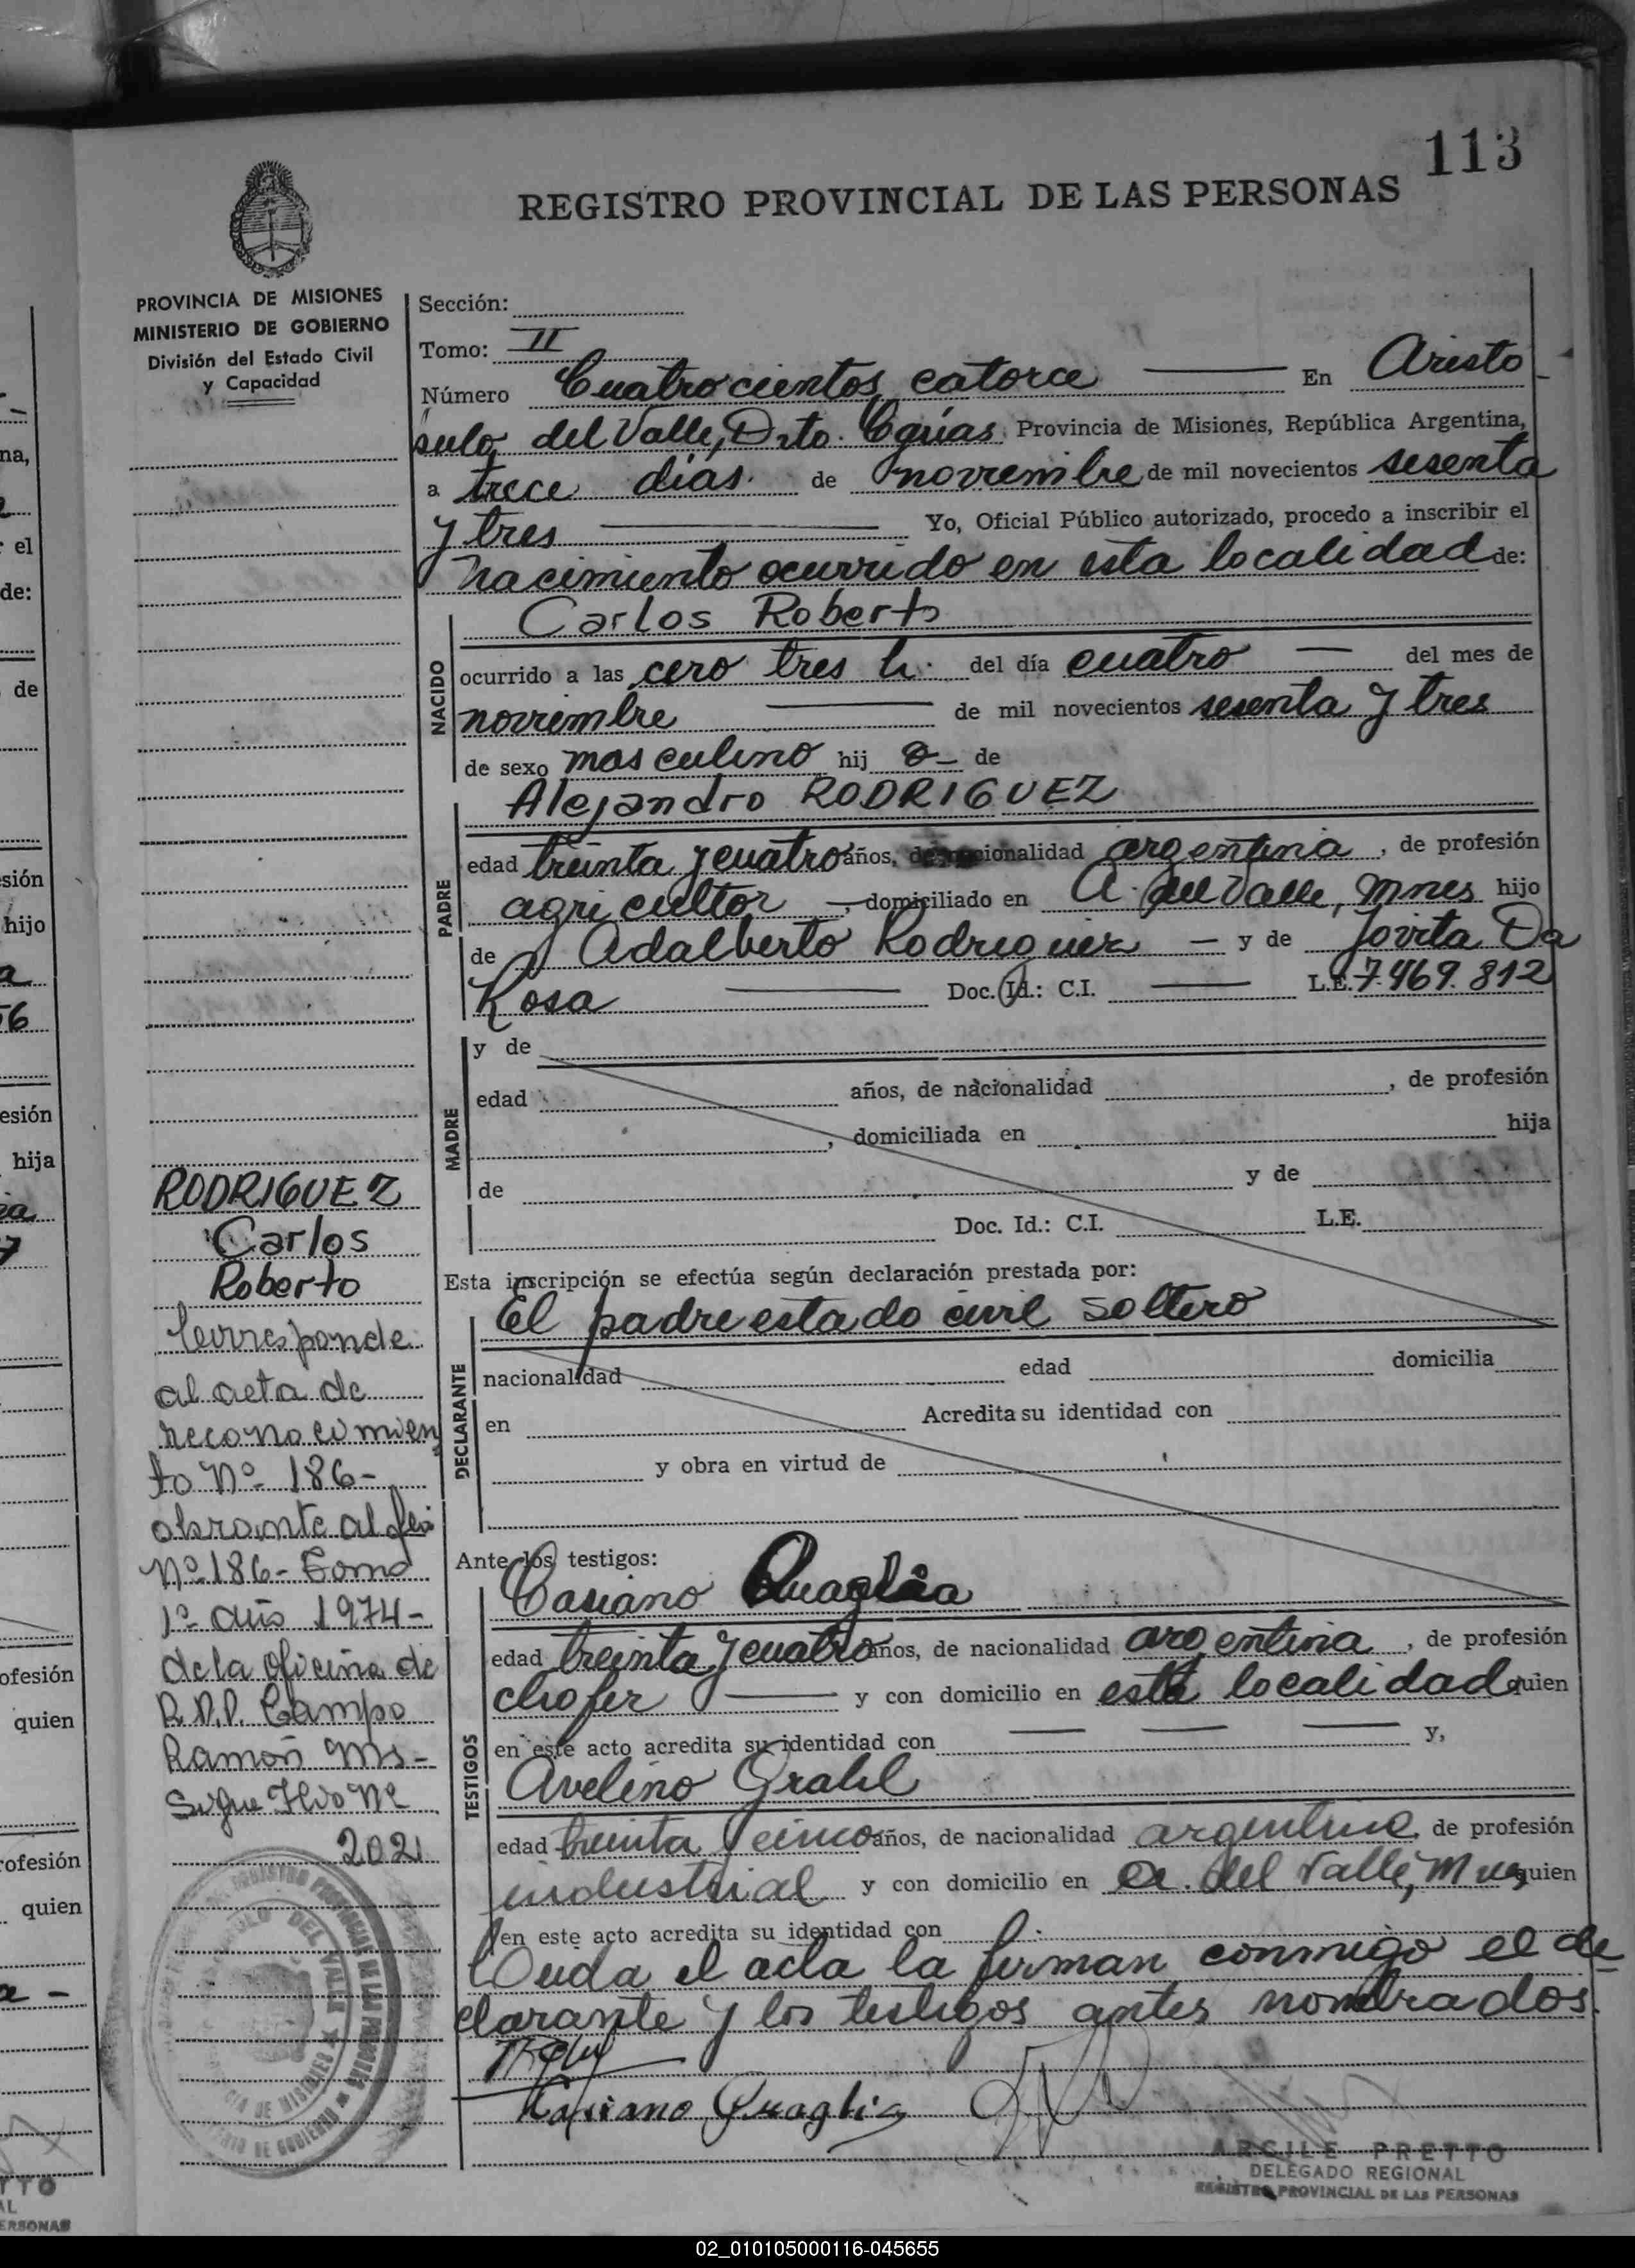 113
REGISTRO PROVINCIAL DE LAS PERSONAS
PROVINCIA DE MISIONES
MINISTERIO DE GOBIERNO
División del Estado Civil
y Capacidad
Sección:
Tomo: II
Número Cuatrocientos catorce En Aristo
bulo del Valle, Dto. Cgúas Provincia de Misiones, República Argentina,
a trece días de noviembre de mil novecientos sesenta
y tres Yo, Oficial Público autorizado, procedo a inscribir el
nacimiento ocurrido en esta localidad de:
NACIDO
Carlos Roberto
ocurrido a las cero tres h. del día cuatro del mes de
noviembre de mil novecientos sesenta y tres
de sexo masculino hij o de
PADRE
Alejandro RODRIGUEZ
edad treinta y cuatro años, de nacionalidad argentina, de profesión
agricultor, domiciliado en A. del Valle, Mnes hijo
de Adalberto Rodriguez y de Jovita Da
Rosa Doc. Id.: C.I. L.E. 7.469.812
MADRE
y de
edad años, de nacionalidad , de profesión
, domiciliada en hija
de y de
Doc. Id.: C.I. L.E.
Esta inscripción se efectúa según declaración prestada por:
DECLARANTE
El padre estado civil soltero
nacionalidad edad domicilia
en Acredita su identidad con
y obra en virtud de
Ante los testigos:
TESTIGOS
Casiano Quaglia
edad treinta y cuatro años, de nacionalidad argentina, de profesión
chofer y con domicilio en esta localidad quien
en este acto acredita su identidad con y,
Avelino Grahl
edad treinta y cinco años, de nacionalidad argentina, de profesión
industrial y con domicilio en A. del Valle, Mnes quien
en este acto acredita su identidad con
Leida el acta la firman conmigo el de
clarante y los testigos antes nombrados.
Casiano Quaglia
ARGILE PRETTO
DELEGADO REGIONAL
REGISTRO PROVINCIAL DE LAS PERSONAS
RODRIGUEZ
Carlos
Roberto
Corresponde
al acta de
reconocimien
to Nº 186-
obrante al folio
Nº 186- Tomo
1º año 1974-
de la oficina de
R.P.P. Campo
Ramón Ms-
Sigue Flio Nº
202
na,
el
de:
de
sión
hijo
56
esión
hija
7
ofesión
quien
rofesión
quien
a -
TTO
AL
ERSONAS
02_010105000116-045655